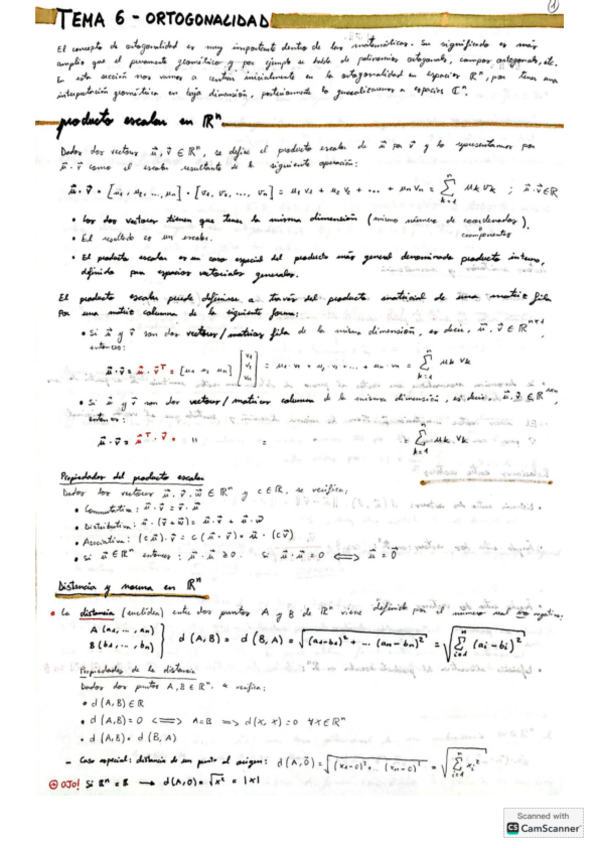 TEMA 6 - ORTOGONALIDAD
(1)
El concepto de ortogonalidad es muy importante dentro de las matemáticas. Su significado es más
amplio que el puramente geométrico y por ejemplo se habla de polinomios ortogonales, campos ortogonales, etc.
En esta sección nos vamos a centrar inicialmente en la ortogonalidad en espacios ℝⁿ, por tener una
interpretación geométrica en baja dimensión, posteriormente lo generalizaremos a espacios ℂⁿ.
producto escalar en ℝⁿ
Dados dos vectores u⃗, v⃗ ∈ ℝⁿ, se define el producto escalar de u⃗ por v⃗ y lo representamos por
u⃗ · v⃗ como el escalar resultante de la siguiente operación:
u⃗ · v⃗ = [u₁, u₂, ..., uₙ] · [v₁, v₂, ..., vₙ] = u₁v₁ + u₂v₂ + ... + uₙvₙ = Σₖ₌₁ⁿ uₖvₖ ; u⃗·v⃗ ∈ ℝ
• Los dos vectores tienen que tener la misma dimensión (mismo número de coordenadas).
componentes
• El resultado es un escalar.
• El producto escalar es un caso especial del producto más general denominado producto interno,
definido para espacios vectoriales generales.
El producto escalar puede definirse a través del producto matricial de una matriz fila
por una matriz columna de la siguiente forma:
• Si u⃗ y v⃗ son dos vectores/matrices fila de la misma dimensión, es decir, u⃗, v⃗ ∈ ℝ
entonces:
u⃗ · v⃗ = u⃗ · v⃗ᵀ = [u₁ u₂ uₙ] [v₁ v₂ vₙ] = u₁·v₁ + u₂·v₂ + ... + uₙ·vₙ = Σₖ₌₁ⁿ uₖvₖ
• Si u⃗ y v⃗ son dos vectores/matrices columna de la misma dimensión, es decir, u⃗, v⃗ ∈ ℝ
entonces:
u⃗ · v⃗ = u⃗ᵀ · v⃗ = " = = Σₖ₌₁ⁿ uₖ·vₖ
Propiedades del producto escalar
Dados los vectores u⃗, v⃗, w⃗ ∈ ℝⁿ y c ∈ ℝ, se verifica:
• Conmutativa: u⃗·v⃗ = v⃗·u⃗
• Distributiva: u⃗·(v⃗+w⃗) = u⃗·v⃗ + u⃗·w⃗
• Asociativa: (cu⃗)·v⃗ = c(u⃗·v⃗) = u⃗·(cv⃗)
• Si u⃗ ∈ ℝⁿ entonces: u⃗·u⃗ ≥ 0. Si u⃗·u⃗ = 0 ⟺ u⃗ = 0⃗
Distancia y norma en ℝⁿ
• La distancia (euclídea) entre dos puntos A y B de ℝⁿ viene definida por el número real no negativo:
A(a₁, ..., aₙ)
B(b₁, ..., bₙ) } d(A,B) = d(B,A) = √((a₁-b₁)² + ... (aₙ-bₙ)²) = √(Σᵢ₌₁ⁿ (aᵢ-bᵢ)²)
Propiedades de la distancia
Dados dos puntos A, B ∈ ℝⁿ, se verifica:
• d(A,B) ∈ ℝ
• d(A,B) = 0 ⟺ A=B ⟹ d(x,x) = 0 ∀x∈ℝⁿ
• d(A,B) = d(B,A)
- Caso especial: distancia de un punto al origen: d(A,0̄) = √((x₁-0)² + ... (xₙ-0)²) = √(Σᵢ₌₁ⁿ xᵢ²)
OJO! Si ℝⁿ = ℝ ⟶ d(A,0) = √x² = |x|
Scanned with
CS CamScanner